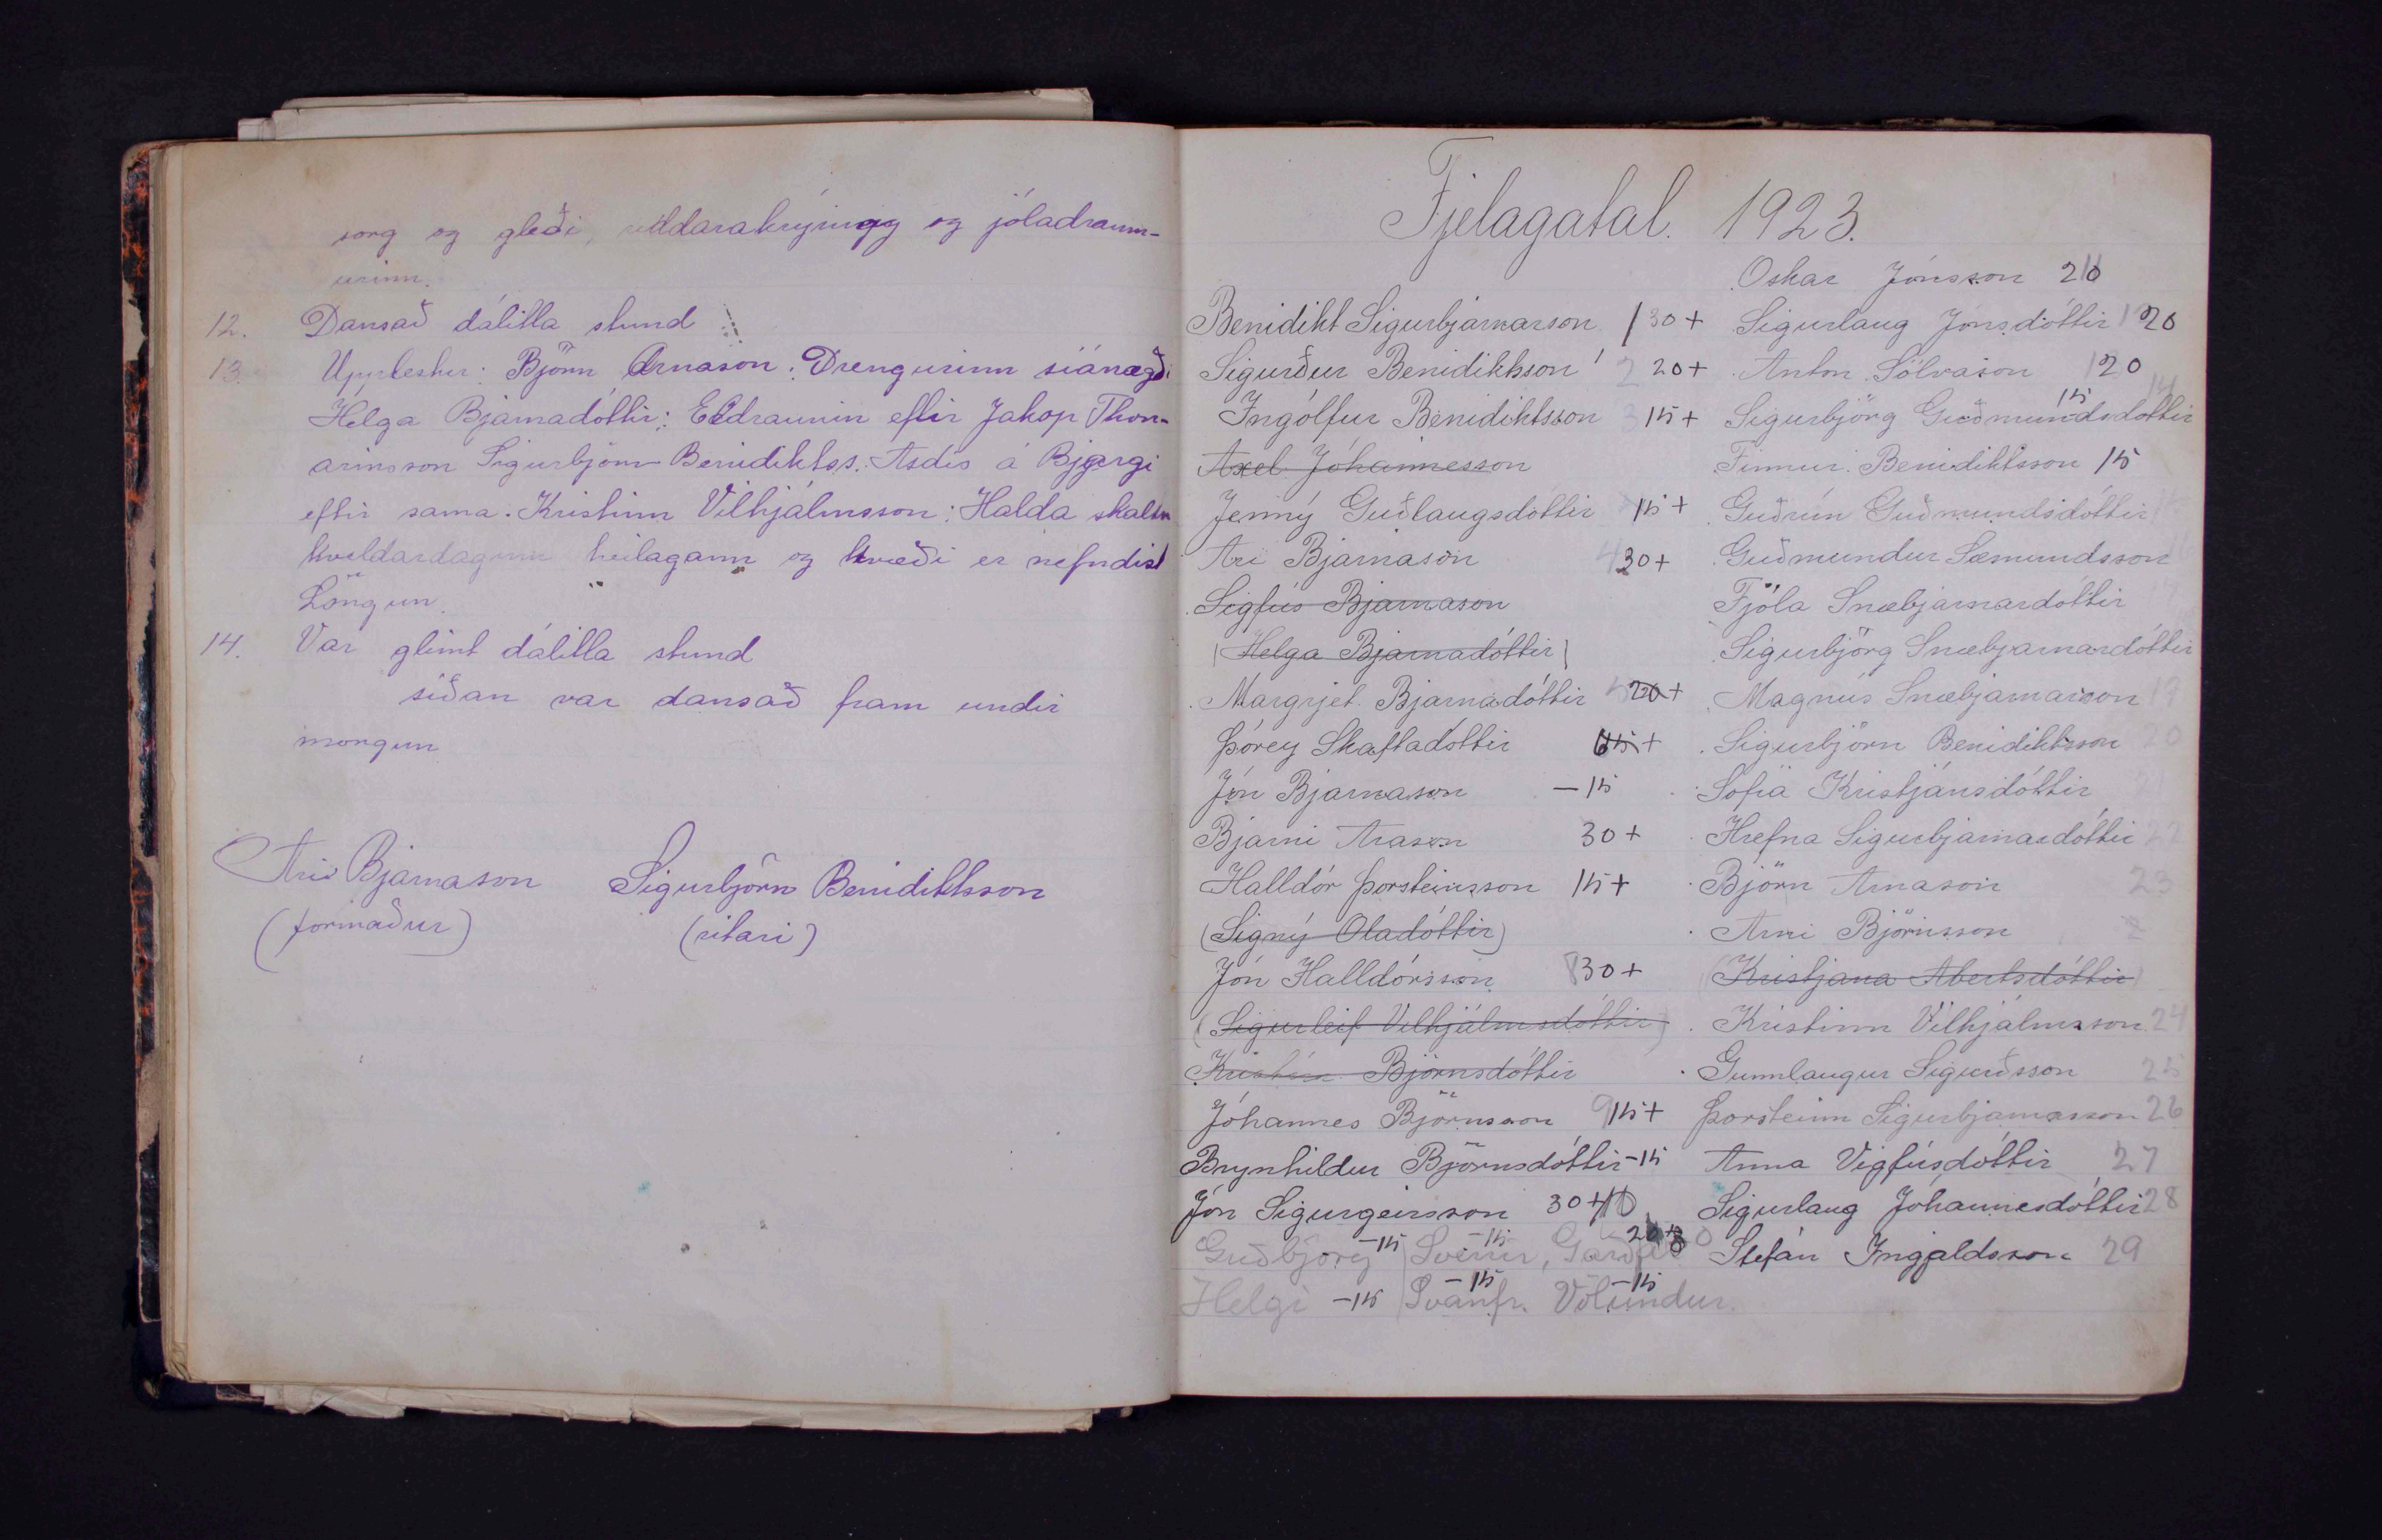 sorg og gleði, riddarakrýning og jóladraum-
urinn.
12. Dansað dálitla stund
13. Upplestur: Björn Arnason: Drengurinn síánægði
Helga Bjarnadóttir: Eldraunin eftir Jakop Thor-
arinsson Sigurbjörn Benidiktss. Asdís á Bjargi
eftir sama. Kristinn Vilhjálmsson: Halda skaltu
hveldardaginn heilagann og kvæði er nefndist
Löngun.
14. Var glímt dálitla stund
síðan var dansað fram undir
morgun
Ari Bjarnason Sigurbjörn Benidiktsson
(formaður) (ritari)
Fjelagatal. 1923.
Benidikt Sigurbjarnarson 1 30 +
Sigurður Benidiktsson 2 20 +
Ingólfur Benidiktsson 3 15 +
Axel Jóhannesson
Jenný Guðlaugsdóttir 15 +
Ari Bjarnason 4 30 +
Sigfús Bjarnason
(Helga Bjarnadóttir)
Margrjet Bjarnadóttir 5 20 +
Þórey Skaftadóttir 6 15 +
Jón Bjarnason - 15
Bjarni Arason 30 +
Halldór Þorsteinsson 15 +
(Signý Oladóttir)
Jón Halldórsson 8 30 +
(Sigurleif Vilhjálmsdóttir)
Kristín Björnsdóttir
Jóhannes Björnsson 9 15 +
Brynhildur Björnsdóttir - 15
Jón Sigurgeirsson 30 + 10
Guðbjörg - 15 Sverrir - 15, Garðar
Helgi - 15 Svanfr. - 15 Völundur - 15
Oskar Jónsson 20
Sigurlaug Jónsdóttir 20
Anton Sölvason 20
Sigurbjörg Guðmundsdóttir 15 14
Finnur Benidiktsson 15
Guðrún Guðmundsdóttir
Guðmundur Sæmundsson
Fjóla Snæbjarnardóttir
Sigurbjörg Snæbjarnardóttir
Magnús Snæbjarnarson 19
Sigurbjörn Benidiktsson 20
Sofía Kristjánsdóttir
Hrefna Sigurbjarnardóttir 22
Björn Arnason 23
Arni Björnsson
(Kristjana Abertsdóttir)
Kristinn Vilhjálmsson 24
Gunnlaugur Sigurðsson 25
Þorsteinn Sigurbjarnarson 26
Anna Vigfúsdóttir 27
Sigurlaug Jóhannesdóttir 28
Stefán Ingjaldsson 29